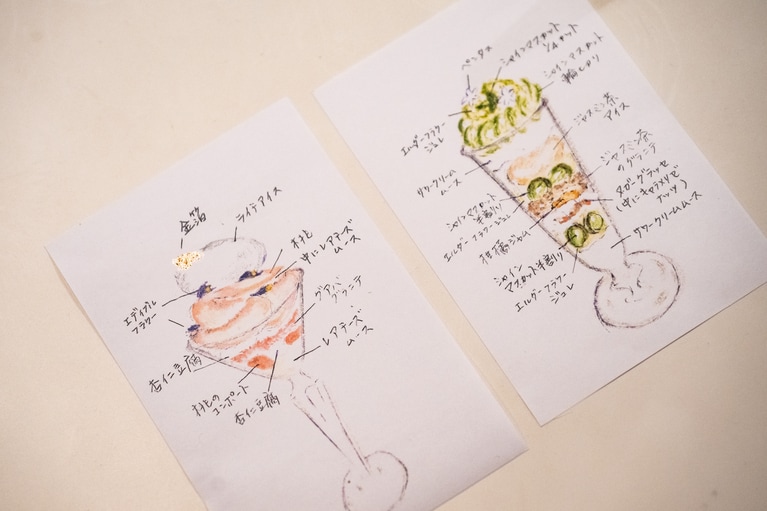 金箔
ライチアイス
桃
中にレアチーズ
ムース
グアバ
グラニテ
レアチーズ
ムース
エディブル
フラワー
杏仁豆腐
桃の
コンポート
杏仁豆腐
ペンタス
シャインマスカット
1/4カット
シャインマスカット
輪切り
ジャスミン茶
アイス
ジャスミン茶
のグラニテ
ヌガーグラッセ
(中にキャラメリゼ
ナッツ)
サワークリームムース
エルダーフラワー
ジュレ
サワークリーム
ムース
シャインマスカット
半割り
エルダーフラワージュレ
柑橘ジャム
シャイン
マスカット半割り
エルダーフラワー
ジュレ